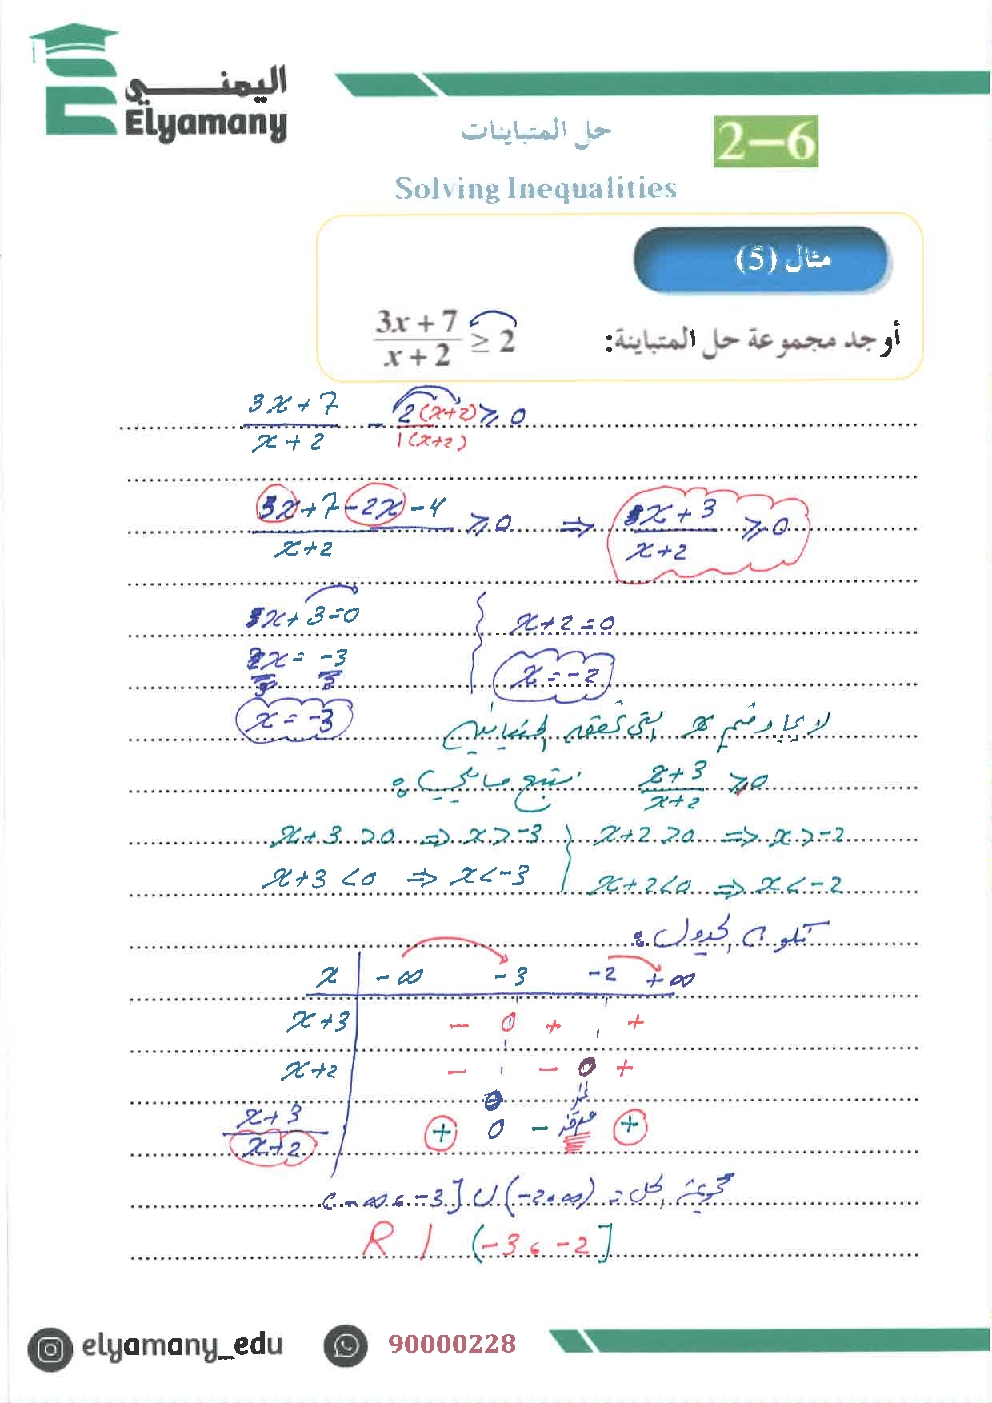 اليمني
Elyamany
حل المتباينات
2–6
Solving Inequalities
مثال (5)
أوجد مجموعة حل المتباينة: (3x + 7)/(x + 2) ≥ 2
(3x+7)/(x+2) - 2(x+2)/1(x+2) ≥ 0
(3x+7-2x-4)/(x+2) ≥ 0 ⇒ (x+3)/(x+2) ≥ 0
x+3=0
x+2=0
x = -3
x = -2
x = -3
لايجاد قيم x التي تحقق المتباينة
(x+3)/(x+2) ≥ 0 نتبع مايلي:
x+3 >0 ⇒ x > -3
x+2 >0 ⇒ x > -2
x+3 <0 ⇒ x < -3
x+2 <0 ⇒ x < -2
نكون الجدول:
x -∞ -3 -2 +∞
x+3 - 0 + +
x+2 - - 0 +
(x+3)/(x+2) + 0 - غير معرف +
مجموعة الحل = (-∞, -3] ∪ (-2, ∞)
R / (-3, -2]
elyamany_edu
90000228